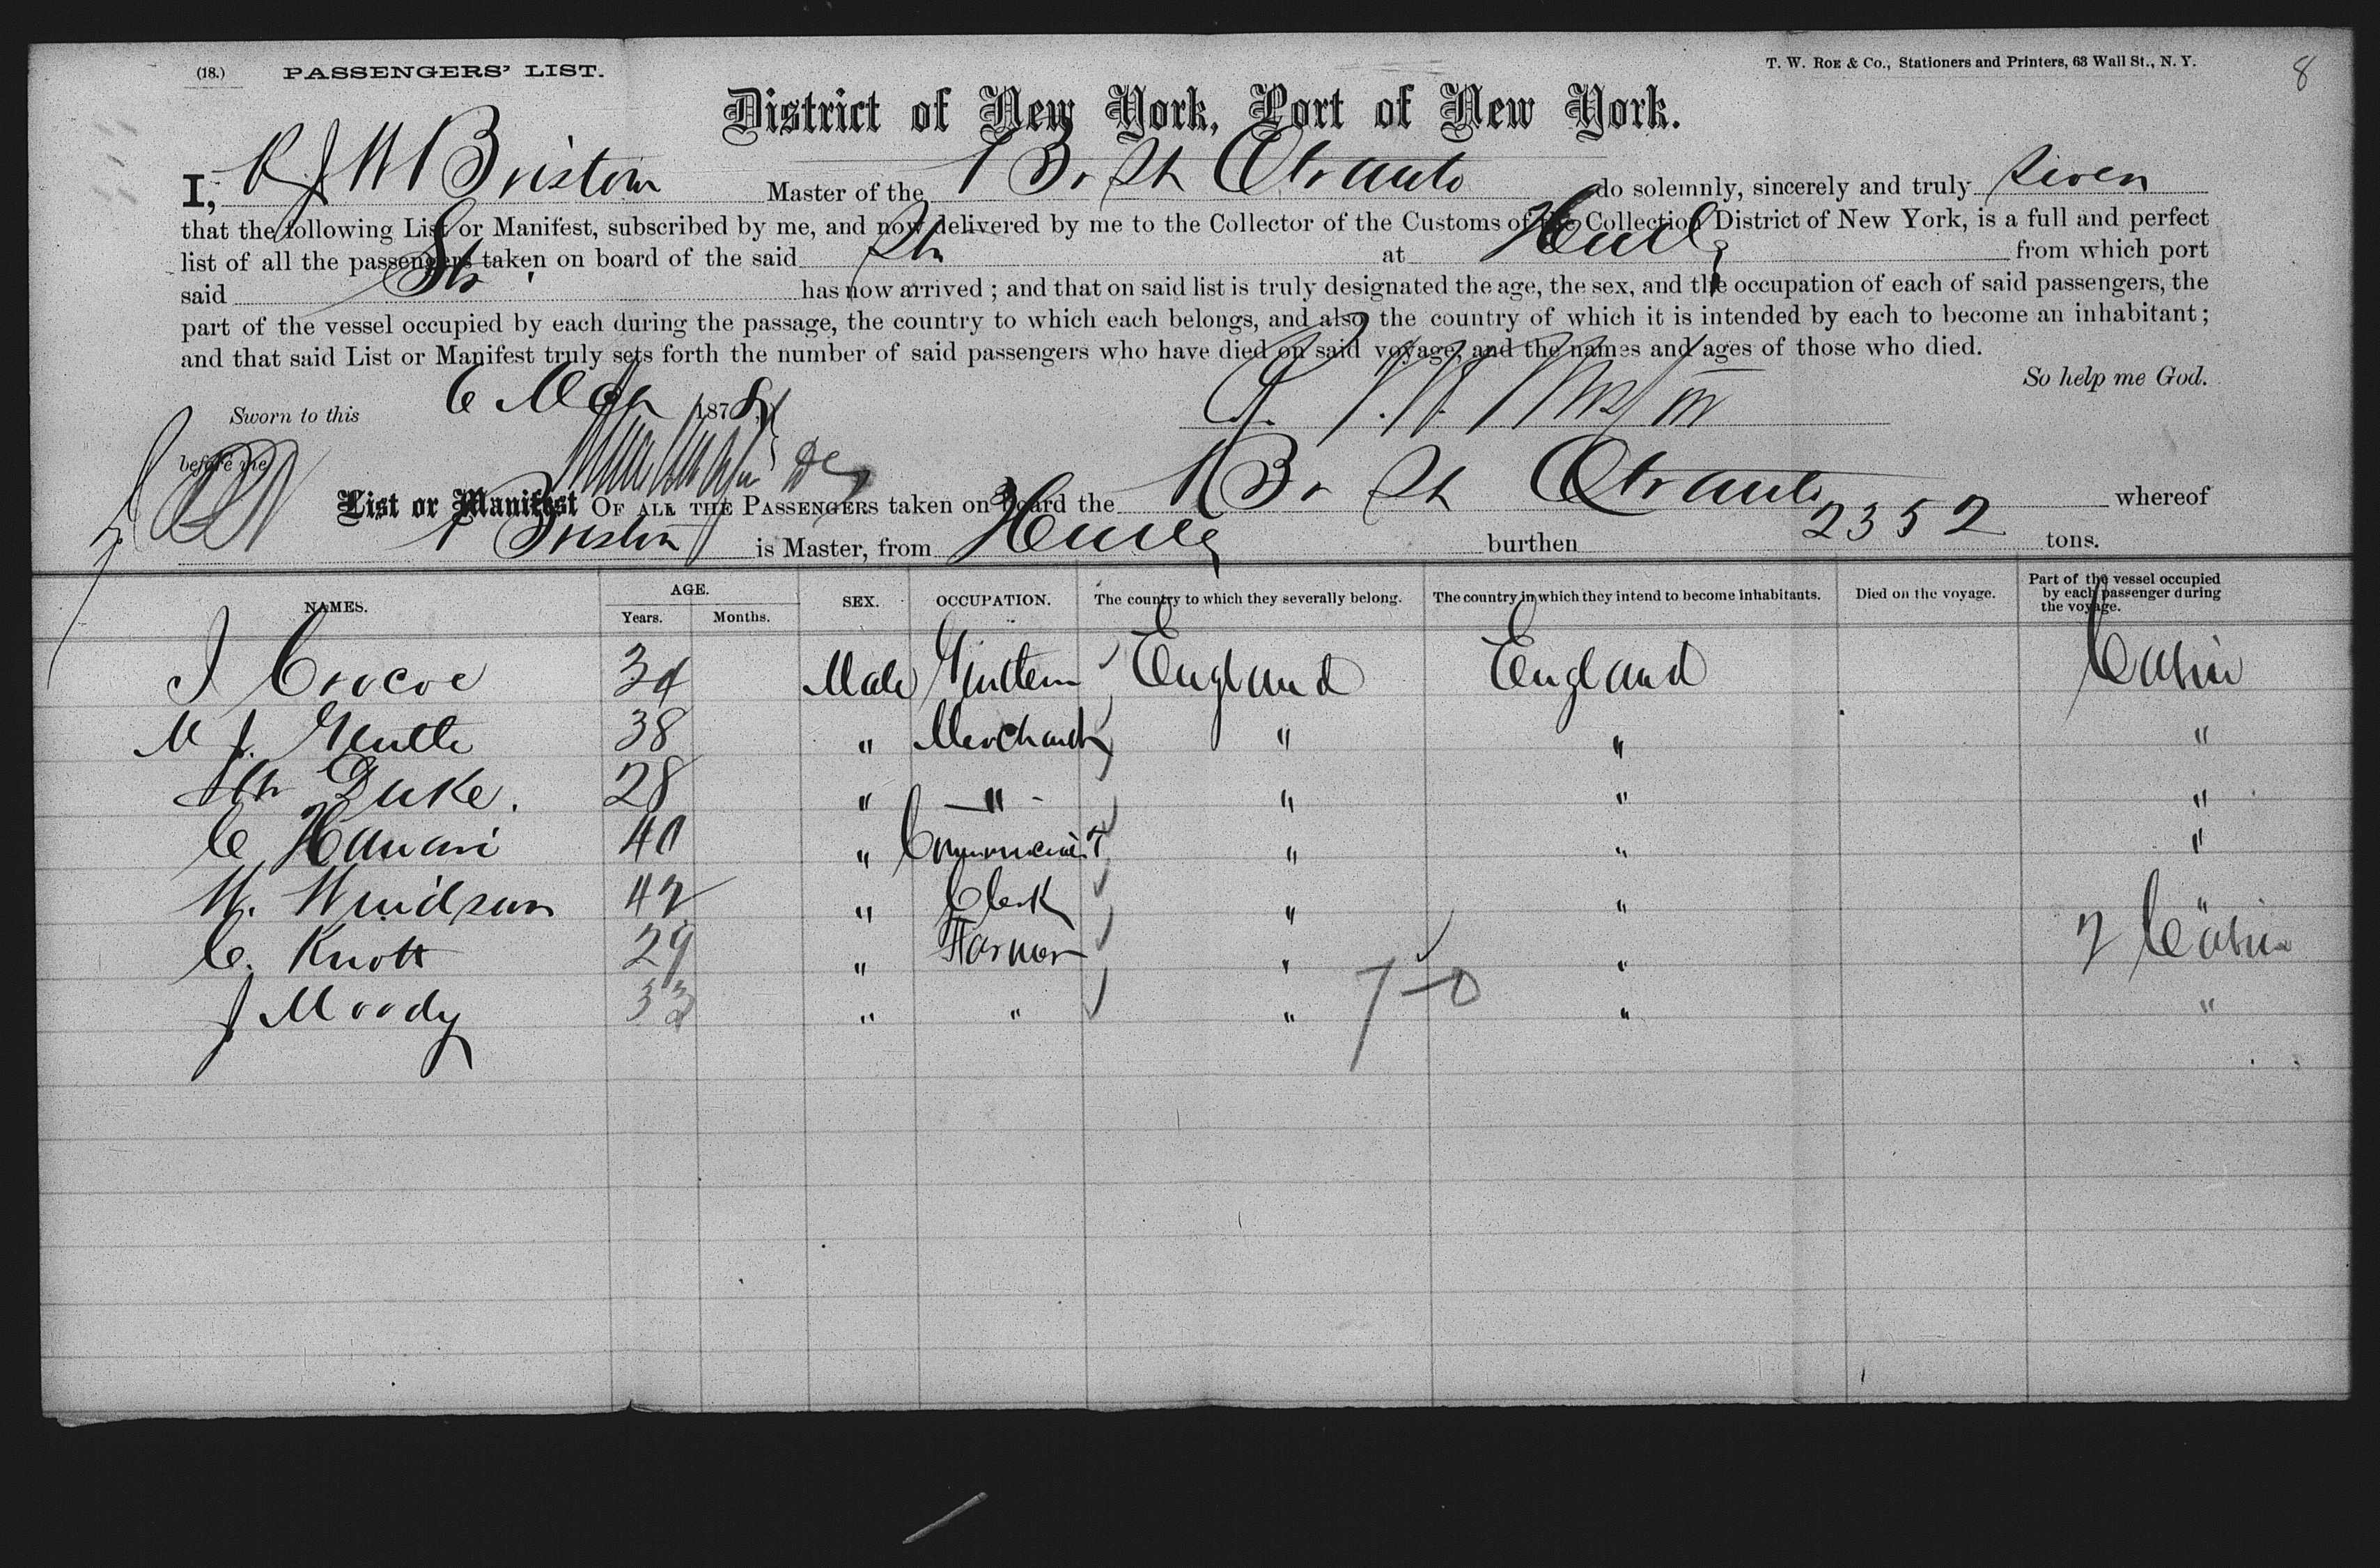 (18.) PASSENGERS' LIST. T. W. ROE & Co., Stationers and Printers, 63 Wall St., N. Y. 8
District of New York, Port of New York.
I, R J W Bristow Master of the Br Str Otranto do solemnly, sincerely and truly swear
that the following List or Manifest, subscribed by me, and now delivered by me to the Collector of the Customs of the Collection District of New York, is a full and perfect
list of all the passengers taken on board of the said Str at Hull from which port
said Str has now arrived ; and that on said list is truly designated the age, the sex, and the occupation of each of said passengers, the
part of the vessel occupied by each during the passage, the country to which each belongs, and also the country of which it is intended by each to become an inhabitant ;
and that said List or Manifest truly sets forth the number of said passengers who have died on said voyage, and the names and ages of those who died.
So help me God.
Sworn to this 6 1878
before me
List or Manifest OF ALL THE PASSENGERS taken on board the Br Str Otranto whereof
Bristow is Master, from Hull burthen 2352 tons.
NAMES. AGE. Years. Months. SEX. OCCUPATION. The country to which they severally belong. The country in which they intend to become inhabitants. Died on the voyage. Part of the vessel occupied by each passenger during the voyage.
34 Male England England Cabin
38 " Merchant " " "
Duke. 28 " " " " "
C 40 " " " "
W. 42 " Clerk " " "
C. Knott 29 " Farmer " " 2 Cabin
J Moody 33 " " " " "
7-0